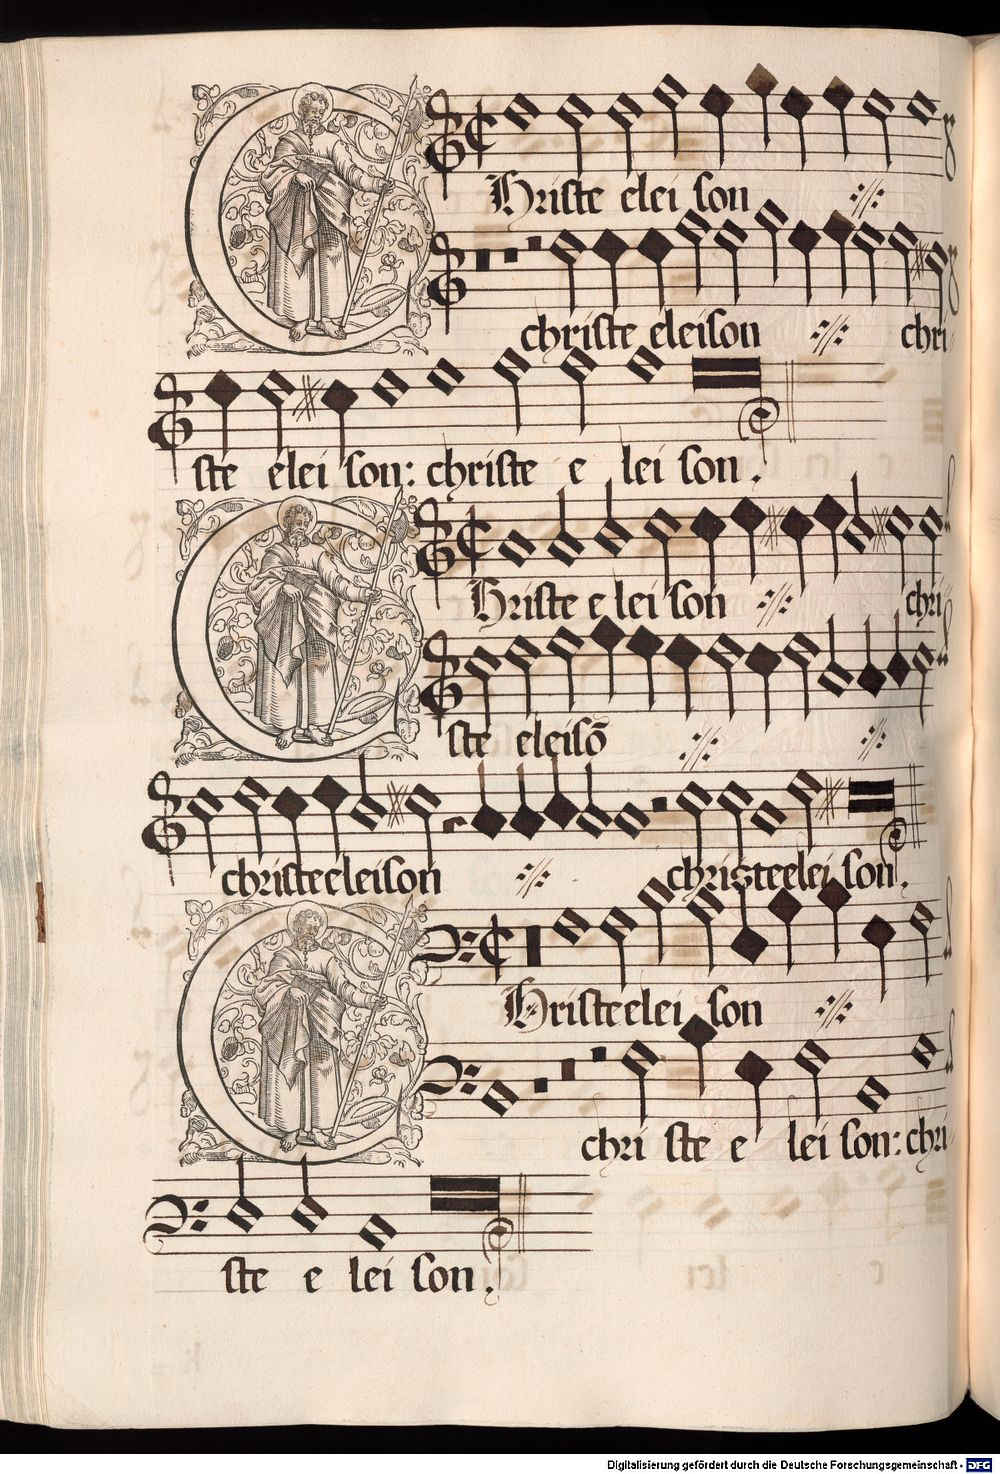 CHriste elei son ·//·
christe eleison ·//· chri-
ste elei son: christe e lei son.
CHriste e lei son ·//· chri
ste eleisō ·//· ·//·
christeeleison ·//· christeelei son.
CHristeelei son ·//·
chri ste e lei son: chri-
ste e lei son.
Digitalisierung gefördert durch die Deutsche Forschungsgemeinschaft - DFG